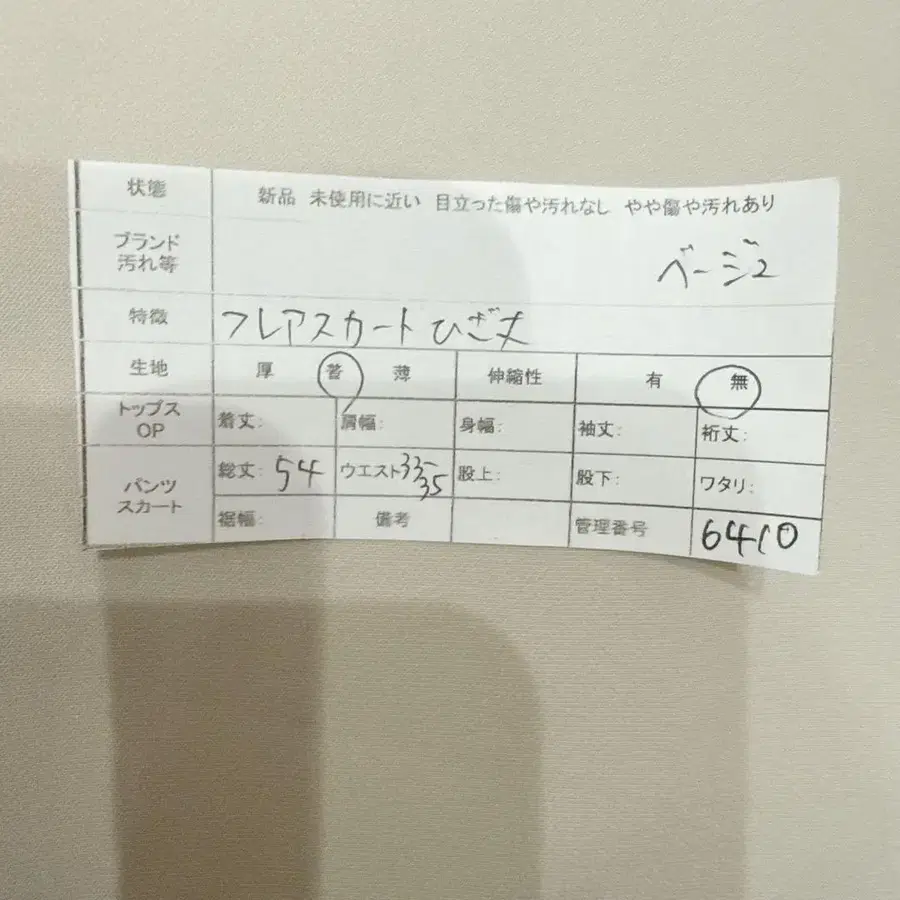 状態 新品 未使用に近い 目立った傷や汚れなし やや傷や汚れあり
ブランド
汚れ等 ベージュ
特徴 フレアスカート ひざ丈
生地 厚 普 薄 伸縮性 有 無
トップス
OP 着丈: 肩幅: 身幅: 袖丈: 裄丈:
パンツ
スカート 総丈: 54 ウエスト 33-35 股上: 股下: ワタリ:
裾幅: 備考 管理番号 6410